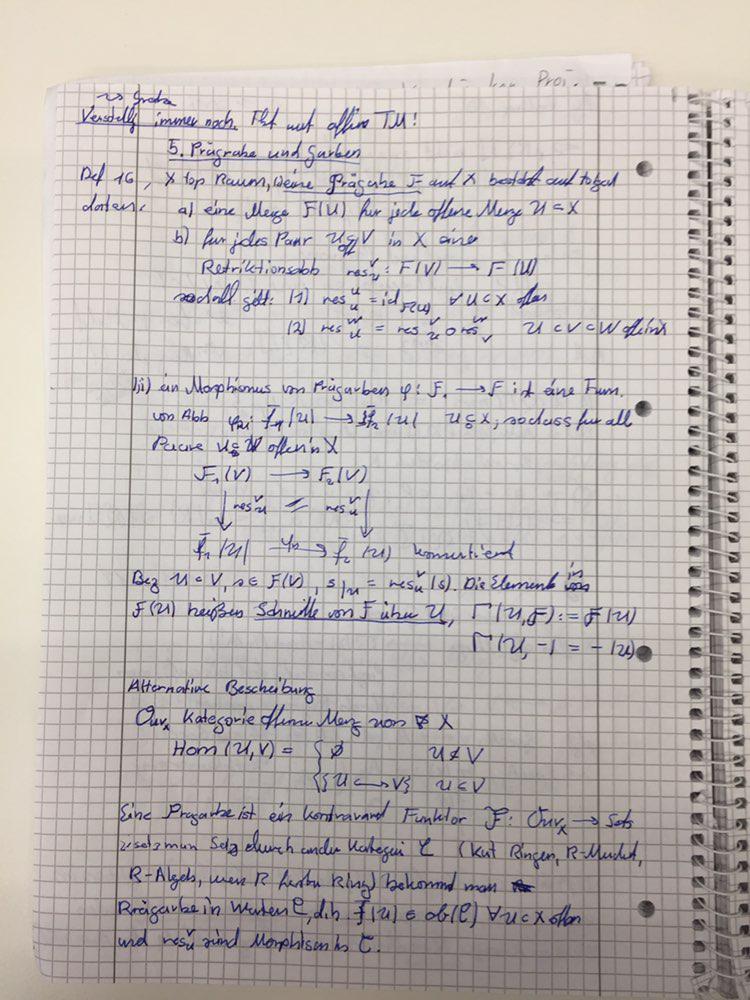 Verstellg immer noch. Fkt auf offen TM!
5. Prägrabe und Garben
Def 16, X top Raum, eine Prägabe F auf X besteht auf folged
daten.
a) eine Mege F(U) für jede offene Menge U ⊂ X
b) für jedes Paar U ⊆ V in X eine
Retriktionsabb res^V_U : F(V) → F(U)
sodall gilt: (1) res^U_U = id_F(U) ∀U⊂X offen
(2) res^W_U = res^V_U ∘ res^W_V U ⊂ V ⊂ W offen in X
ii) ein Morphismus von Prägarben φ: F₁ → F ist eine Fam.
von Abb φ_U: F₁(U) → F₂(U) U ⊆ X, sodass für all
Paare U ⊆ V offen in X
F₁(V) → F₂(V)
↓ res^V_U // res^V_U ↓
F₁(U) → F₂(U) komutiert
Bez U ⊂ V, s ∈ F(V), s|_U = res^V_U(s). Die Elemente in
F(U) heißen Schnitte von F über U, Γ(U,F) := F(U)
Γ(U,-) = -(U)
Alternative Bescheibung
Ouv_X Kategorie offene Meng von X
Hom(U,V) = { ∅ U ⊄ V
{{U ↪ V} U ⊂ V
Eine Pragarbe ist ein kontravariant Funktor F: Ouv_X → Sets
setz man Sets durch andre Kategori C (Kat Ringen, R-Moduln,
R-Algeb, wen R fester Ring) bekommt man
Prägarbe in Werten C, d.h. F(U) ∈ ob(C) ∀U⊂X offen
und res^V_U sind Morphismen in C.